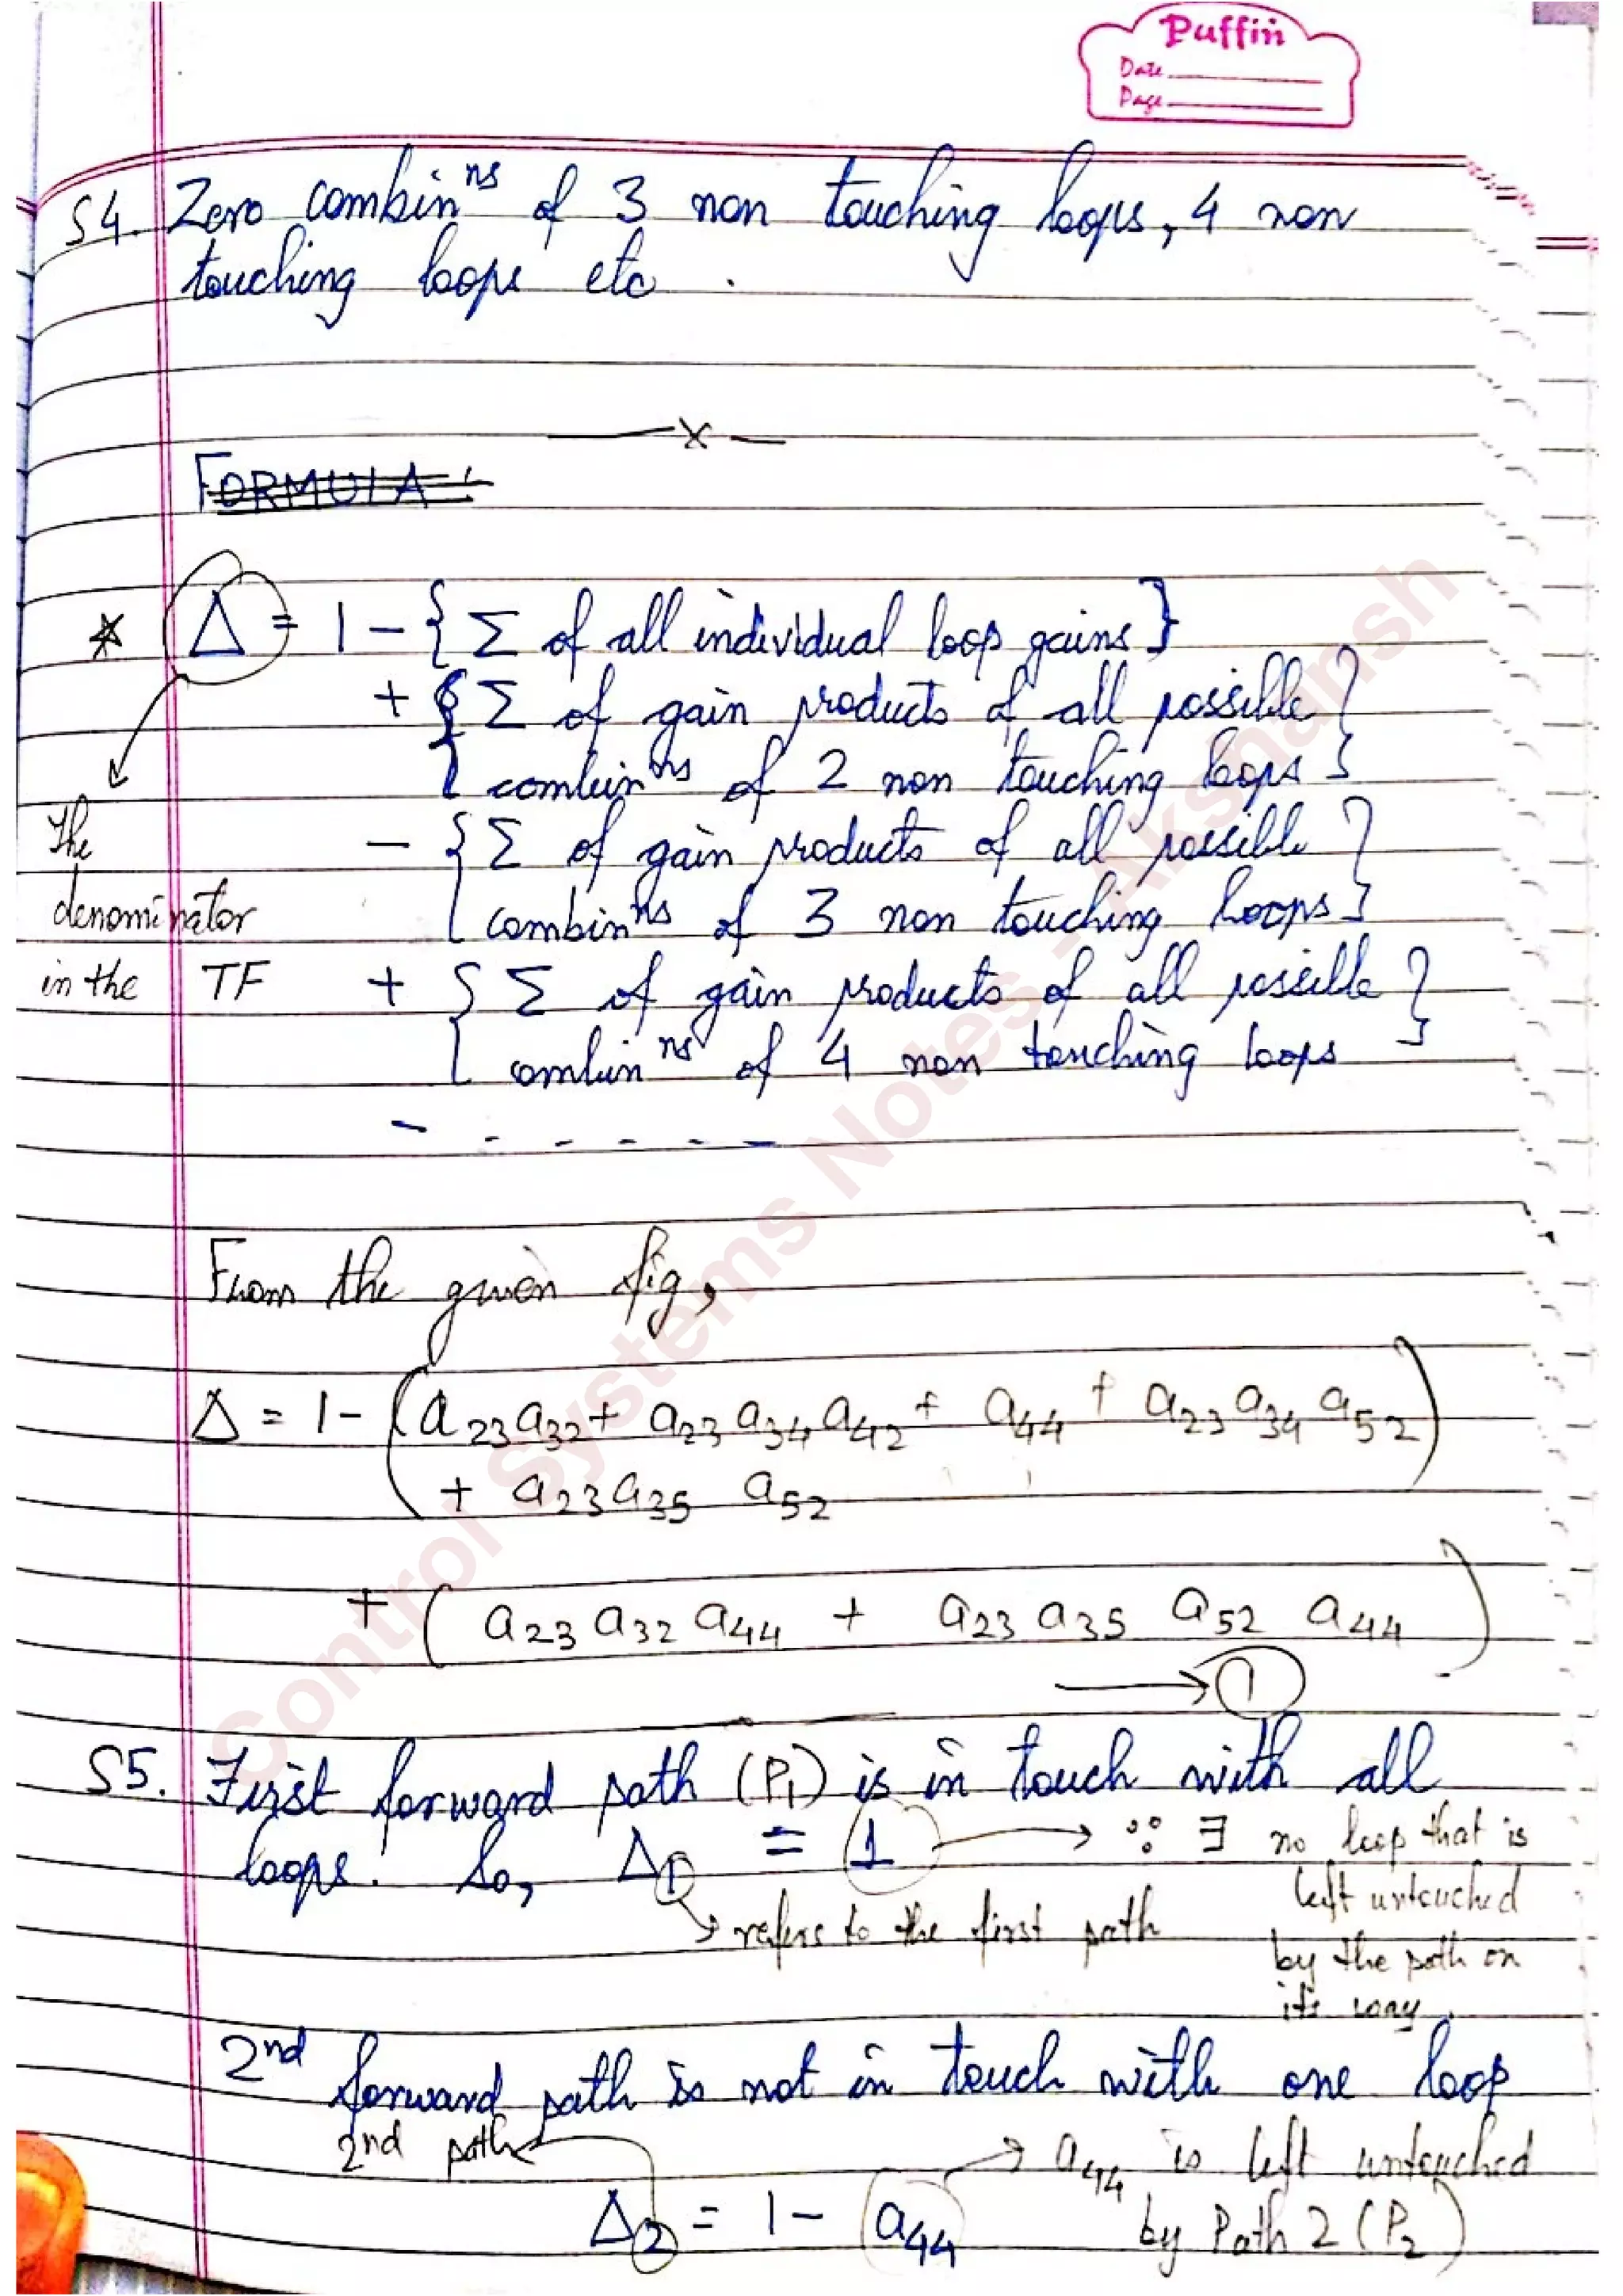 Puffin
Date
Page
S4. Zero combinⁿˢ of 3 non touching loops, 4 non
touching loops etc .
—x—
FORMULA :
* Δ = 1 - { Σ of all individual loop gains }
+ { Σ of gain products of all possible
combinⁿˢ of 2 non touching loops }
- { Σ of gain products of all possible
combinⁿˢ of 3 non touching loops }
+ { Σ of gain products of all possible
combinⁿˢ of 4 non touching loops }
- - - - - - -
The
denominator
in the TF
From the given fig,
Δ = 1 - ( a₂₃a₃₂ + a₂₃a₃₄a₄₂ + a₄₄ + a₂₃a₃₄a₅₂
+ a₂₃a₃₅ a₅₂ )
+ ( a₂₃a₃₂a₄₄ + a₂₃a₃₅ a₅₂ a₄₄ )
→ ①
S5. First forward path (P₁) is in touch with all
loops. So, Δ₁ = 1 → ∵ ∃ no loop that is
left untouched
by the path on
its way.
→ refers to the first path
2nd forward path is not in touch with one loop
2nd path
Δ₂ = 1 - a₄₄ → a₄₄ is left untouched
by Path 2 (P₂)
Control Systems Notes - Akshansh